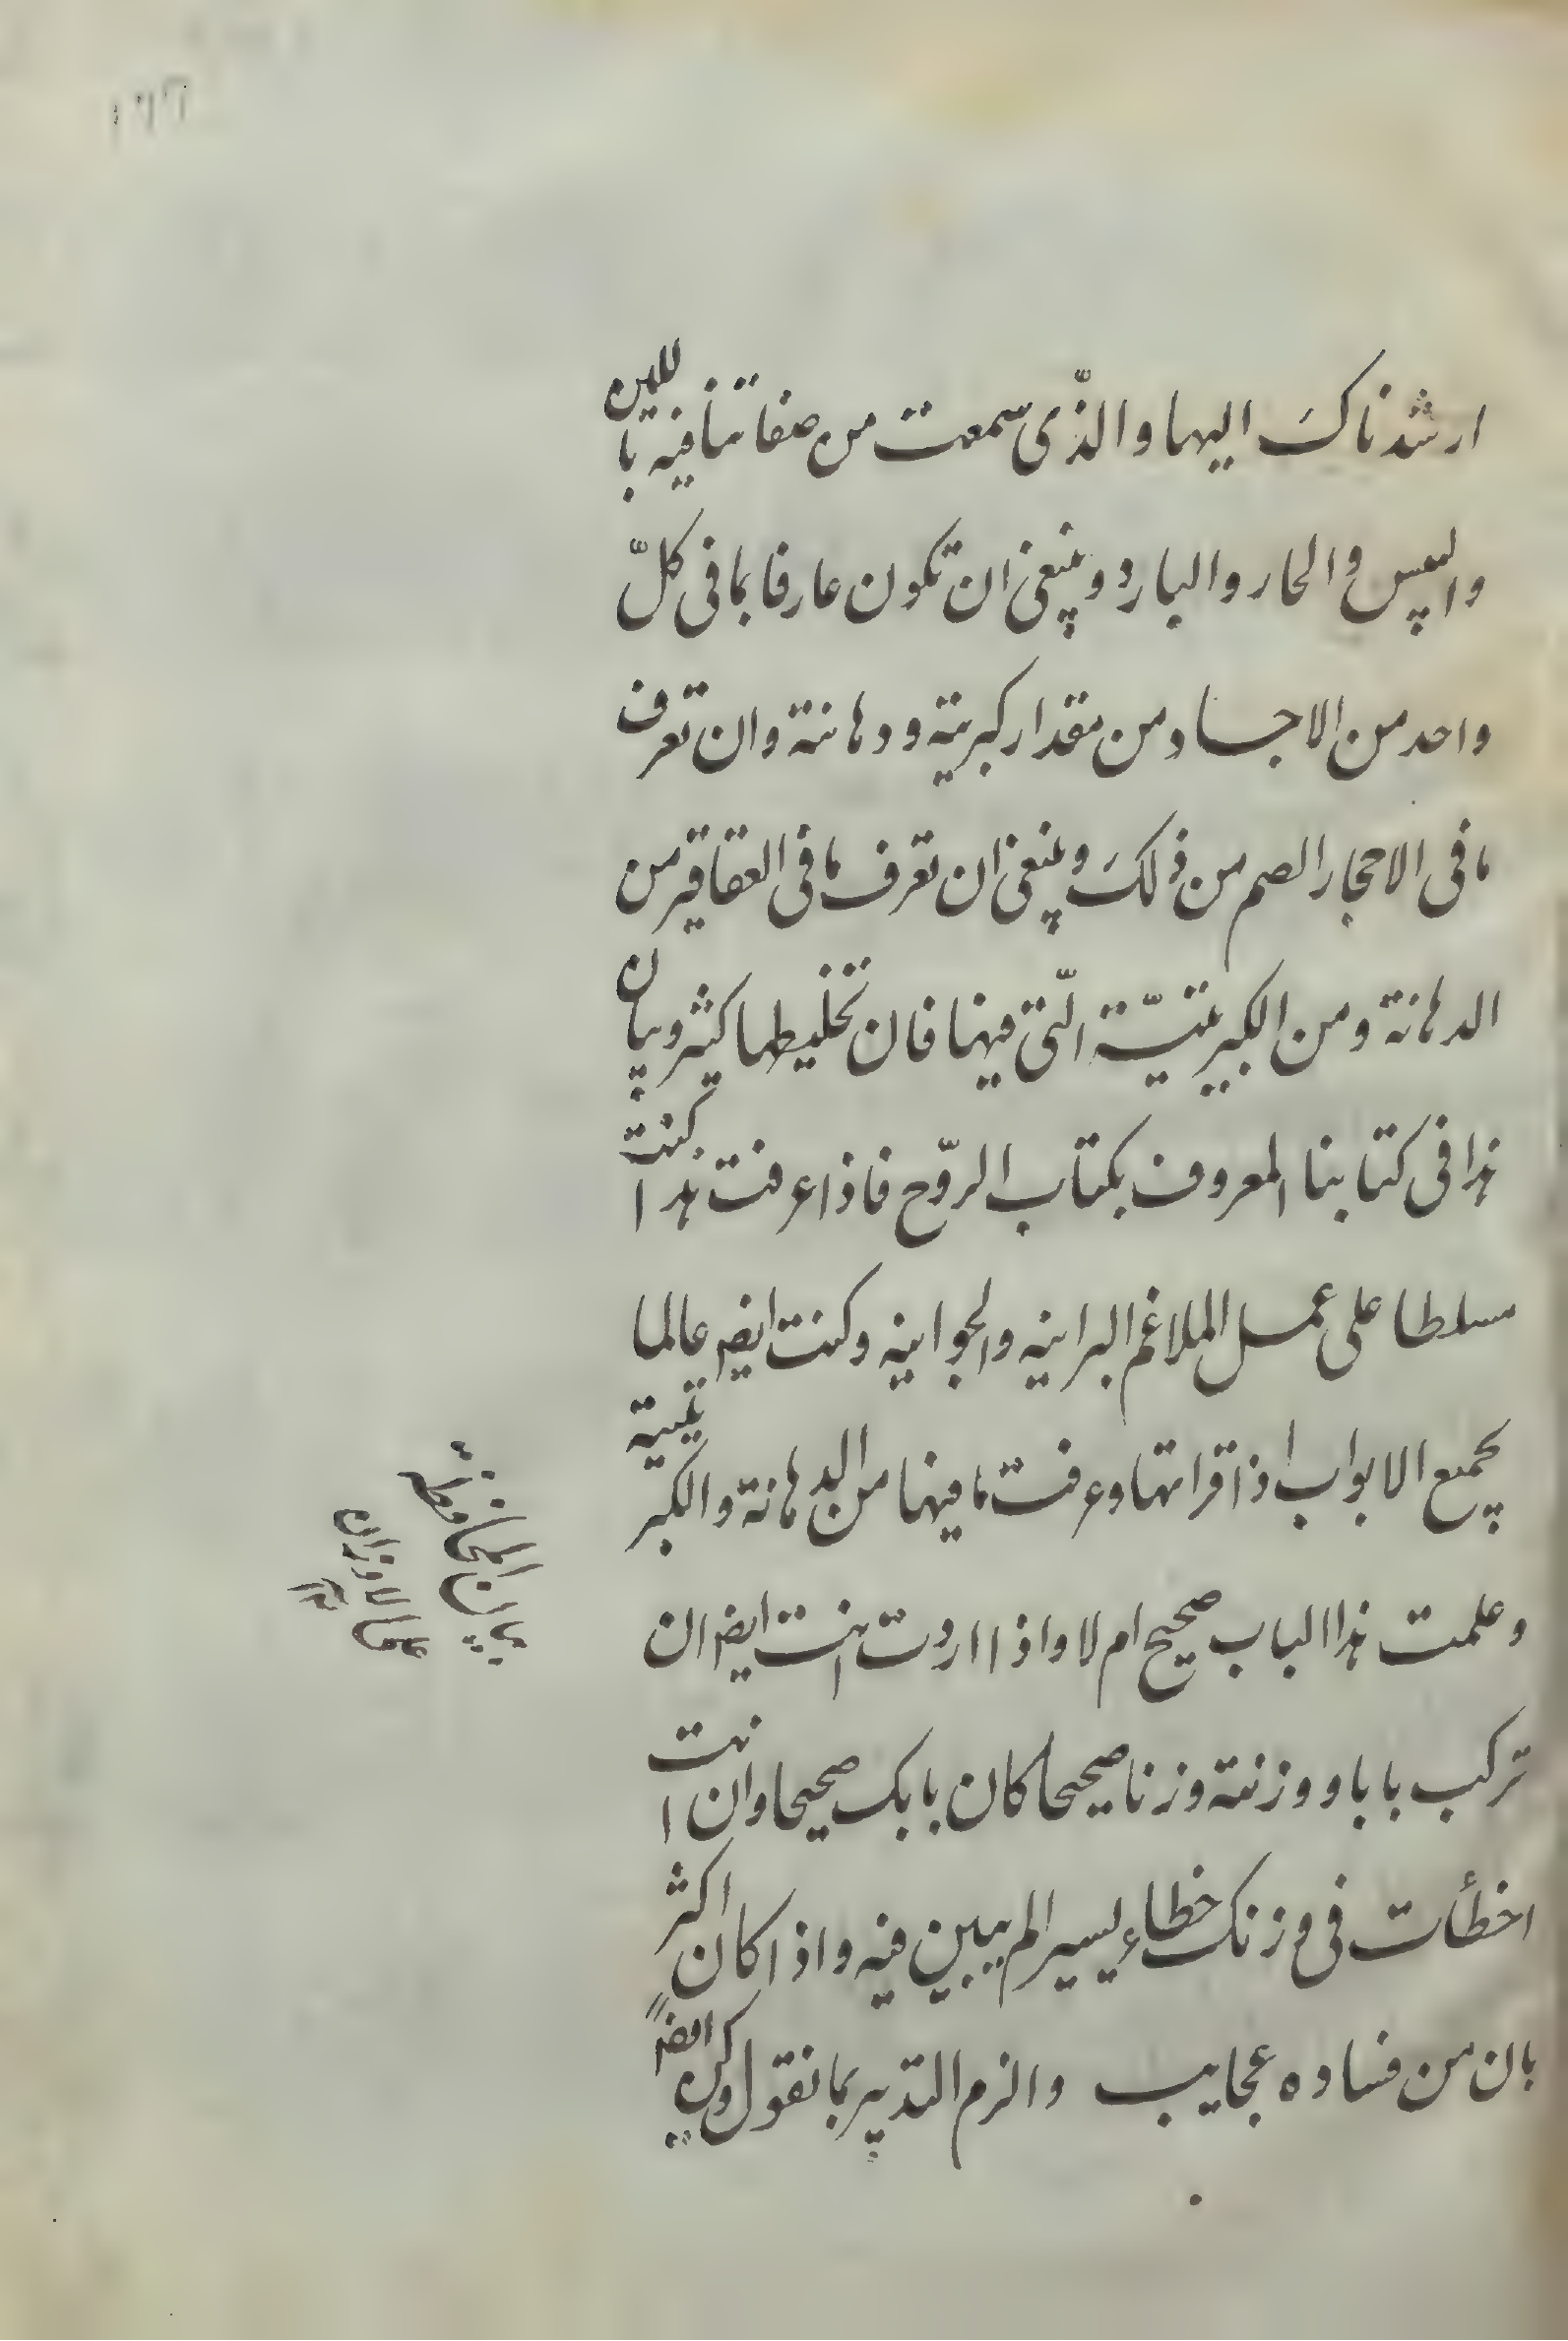 ارشدناك اليها والذّى سمعت من صفاتنا فيه باللين
واليبس والحار والبارد وينبغى ان تكون عارفا بما فى كلّ
واحد من الاجساد من مقدار كبريته ودهانته وان تعرف
ما فى الاحجار الصم من ذلك وينبغى ان تعرف ما فى العقاقير من
الدهانة ومن الكبريتيّة الّتى فيها فان تخليطها كثير وبيان
هذا فى كتابنا المعروف بكتاب الروّح فاذا عرفت هذا كنت
مسلطا على عمل الملاغم البرانيه والجوانيه وكنت ايضا عالما
بجميع الابواب اذا قراتها وعرفت ما فيها من الدهانة والكبريتية
وعلمت هذا الباب صحيح ام لا واذا اردت انت ايضا ان
تركب بابا ووزنته وزنا صحيحا كان بابك صحيحا وان انت
اخطأت فى وزنك خطاء يسيرا لم يبين فيه واذا كان اكثر
بان من فساده عجايب والزم التدبير بما نقول وكن ايضا
بيان المحافظة
على الاوزان